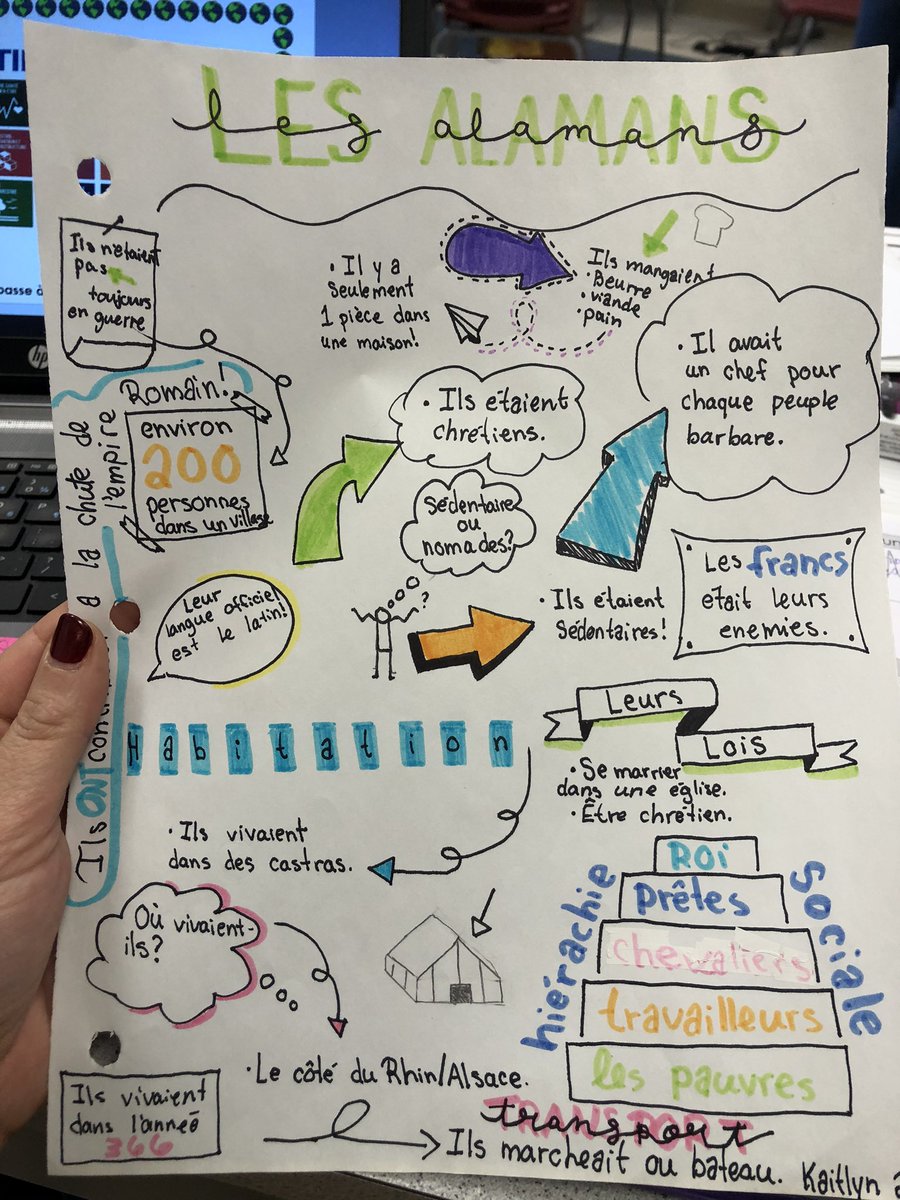 LES ALAMANS
les alamans
Ils n'étaient
pas
toujours
en guerre
• Il y a
seulement
1 pièce dans
une maison!
Ils mangaient
• Beurre
• viande
• pain
• Il avait
un chef pour
chaque peuple
barbare.
• Ils étaient
chrétiens.
Romain!
environ
200
personnes
dans un village
Ils ONT
a la chute de
l'empire
Sédentaire
ou
nomades?
?
• Ils étaient
Sédentaires!
Les francs
était leurs
enemies.
Leur
langue officiel
est le latin!
Habitation
• Ils vivaient
dans des castras.
Leurs
Lois
• Se marrier
dans une église.
• Être chrétien.
hiérachie
sociale
Roi
Prêtes
chevaliers
travailleurs
les pauvres
Où vivaient-
ils?
• Le côté du Rhin/Alsace.
Ils vivaient
dans l'anneé
366
TRANSPORT
transport
Ils marcheait ou bateau.
Kaitlyn
hp